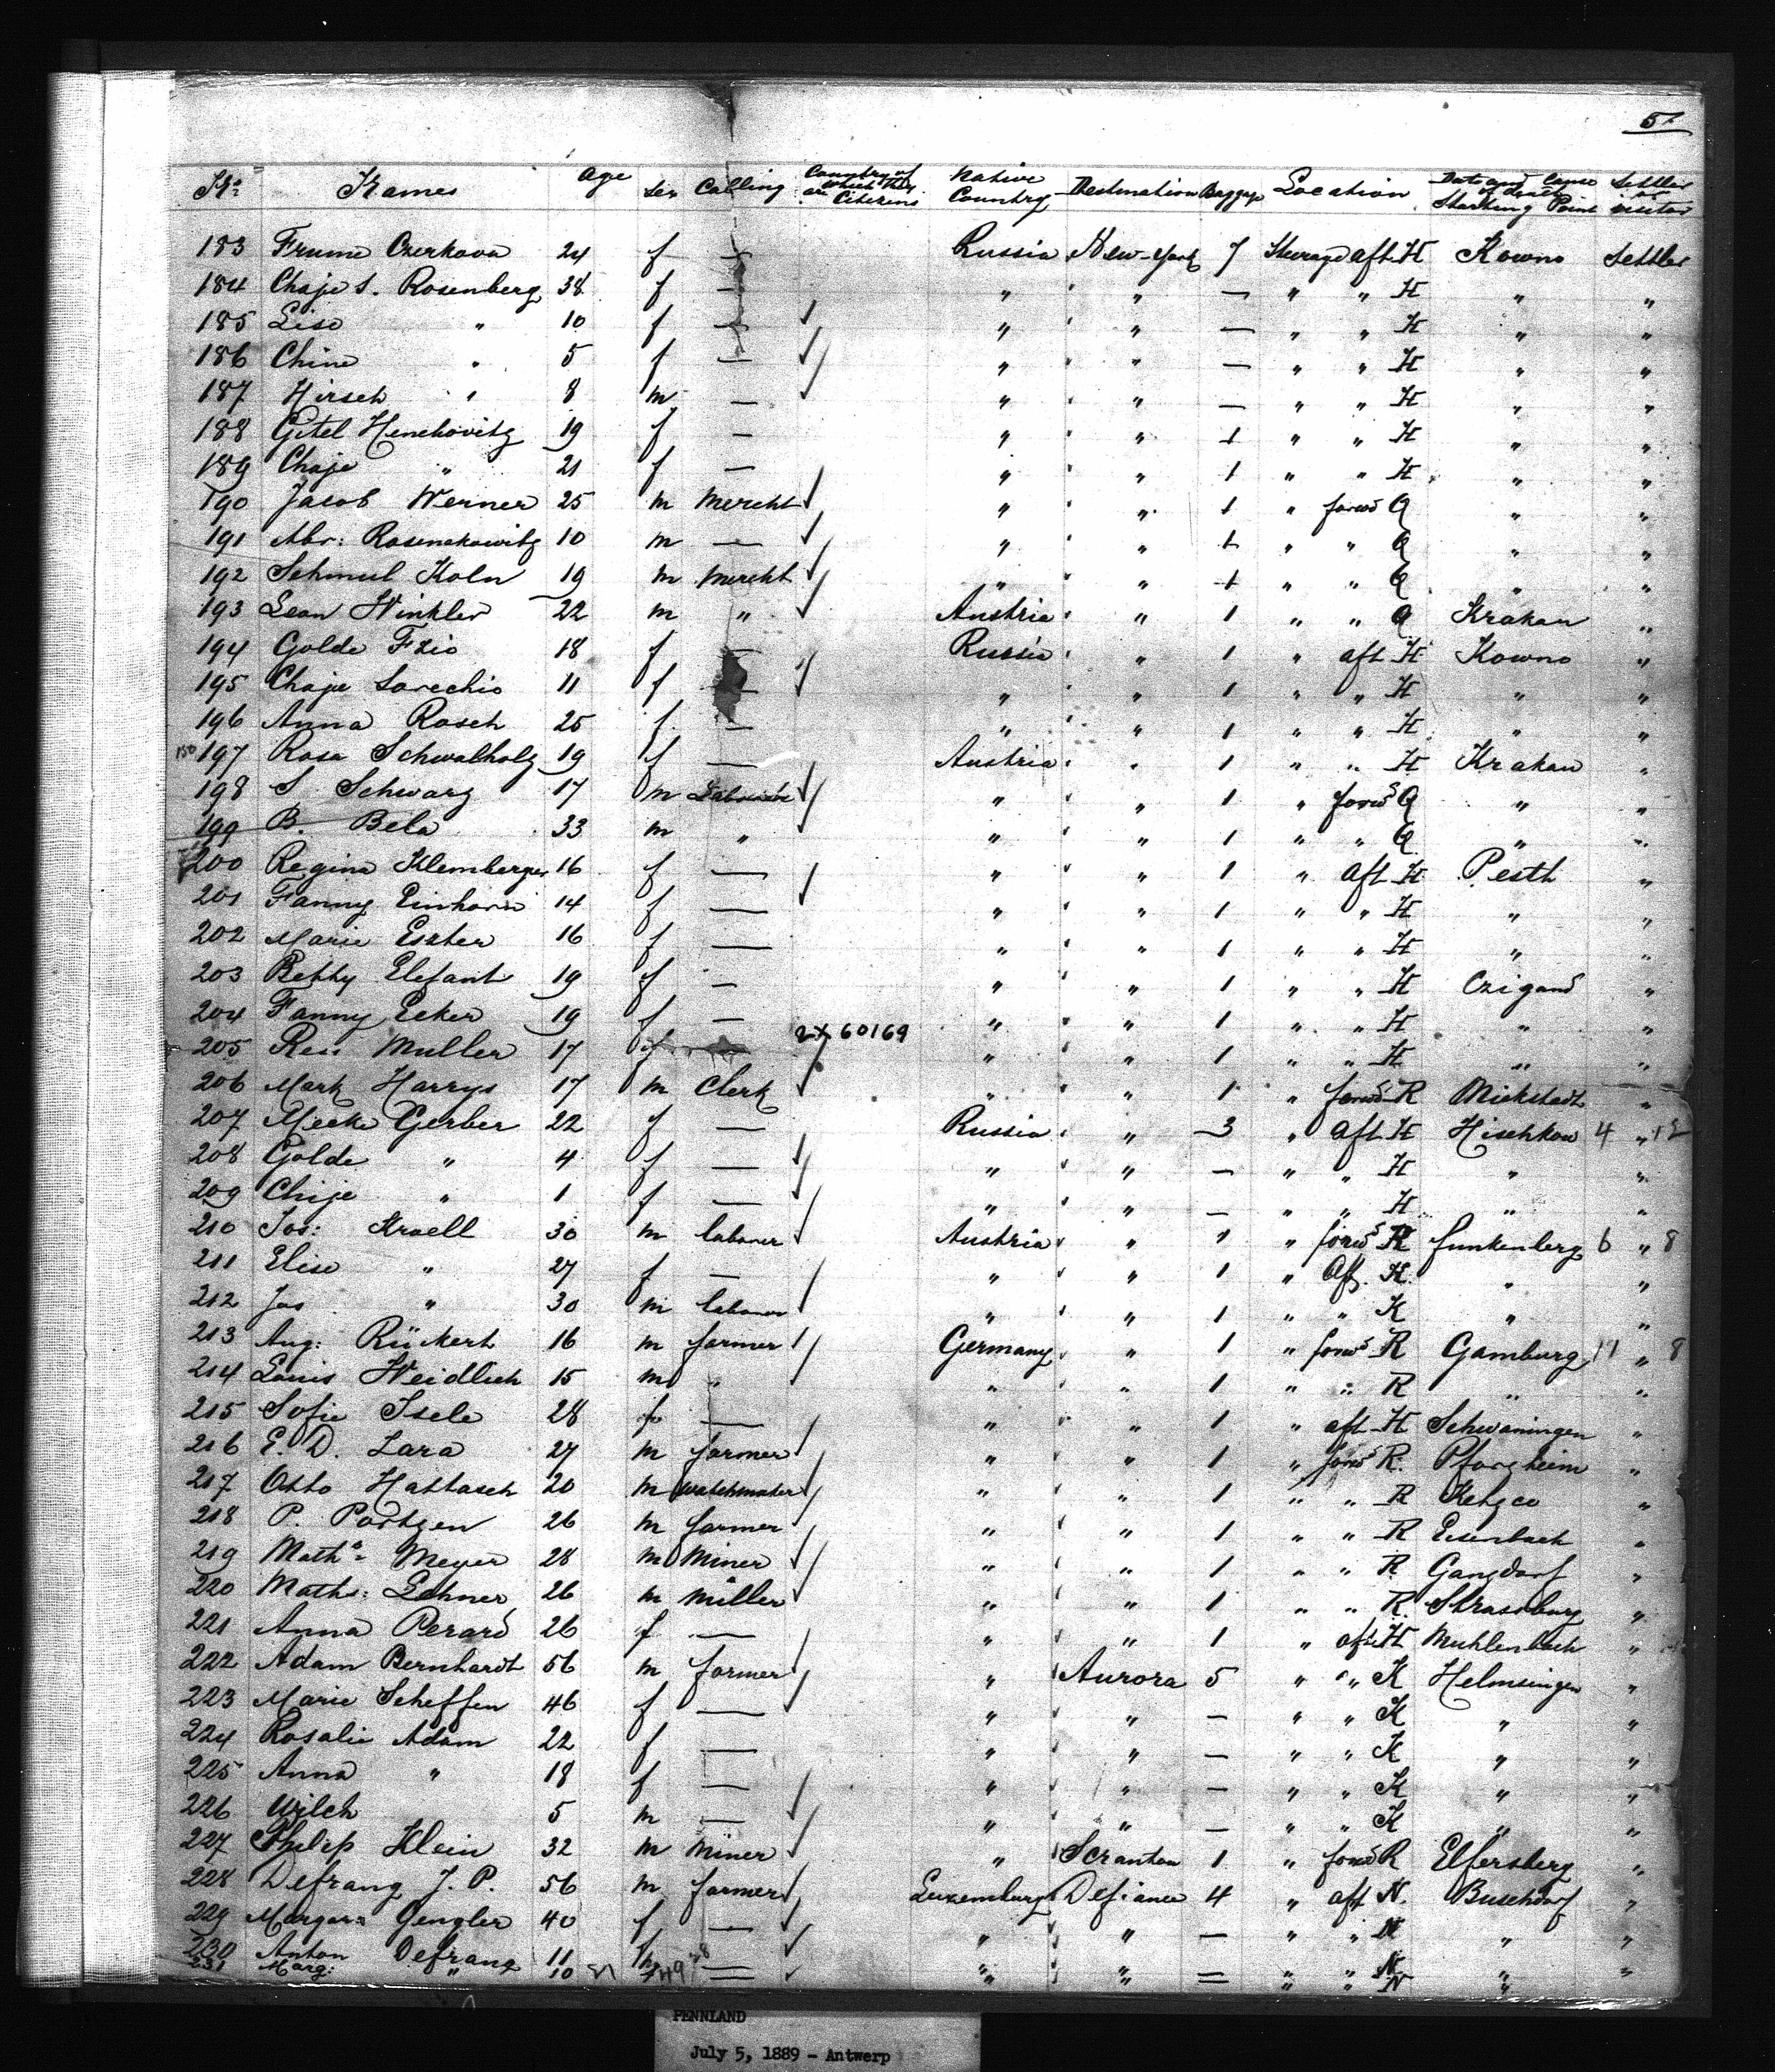 5
No Names Age Sex Calling Country of which they are Citizens Native Country Destination Baggage Location Date and Cause of death Starting Point Settler or visitor
183 Frume Czerkova 24 f — Russia New-York 7 Steerage aft H Kowno Settler
184 Chaje S. Rosenberg 38 f — " " — " " H " "
185 Lise " 10 f — " " — " " H " "
186 Chine " 5 f — " " — " " H " "
187 Hirsch " 8 m — " " — " " H " "
188 Gitel Henchovitz 19 f — " " 1 " " H " "
189 Chaje " 21 f — " " 1 " " H " "
190 Jacob Werner 25 m Mercht " " 1 " forwd Q " "
191 Abr: Rosenakowitz 10 m — " " 1 " " Q " "
192 Schmul Koln 19 m Mercht " " 1 " " Q " "
193 Leon Winkler 22 m " Austria " 1 " " Q Krakau "
194 Golde Fzio 18 f — Russia " 1 " aft H Kowno "
195 Chaje Sorechio 11 f — " " 1 " " H " "
196 Anna Rosch 25 f — " " 1 " " H " "
150 197 Rosa Schwalholz 19 f — Austria " 1 " " H Krakau "
198 S. Schwarz 17 m " " 1 " forwd Q " "
199 B. Bela 33 m " " " 1 " " Q " "
200 Regina Klemberger 16 f — " " 1 " aft H Pesth "
201 Fanny Einhorn 14 f — " " 1 " " H " "
202 Marie Eszter 16 f — " " 1 " " H " "
203 Betty Elefant 19 f — " " 1 " " H Czigand "
204 Fanny Ecker 19 f — " " 1 " " H " "
2X60169
205 Resi Muller 17 f — " " 1 " " H " "
206 Mark Harrys 17 m Clerk " " 1 " forwd R Mickstadt "
207 Mecke Gerber 22 f — Russia " 3 " aft H Hischkow 4 " 12
208 Golde " 4 f — " " — " " H " "
209 Chije " 1 f — " " — " " H " "
210 Jos: Kroell 30 m laborer Austria " 1 " forwd R Funkenberg 6 " 8
211 Elise " 27 f — " " 1 " Aft. K " "
212 Jos " 30 m laborer " " 1 " " K " "
213 Aug: Rückert 16 m farmer Germany " 1 " forwd R Gamburg 11 " 8
214 Louis Weidlich 15 m " " " 1 " " R " "
215 Sofie Isele 28 f — " " 1 " aft H Schwaningen "
216 E. D. Zara 27 m farmer " " 1 " forwd R. Pforzheim "
217 Otto Hattasch 20 m watchmaker " " 1 " " R "
218 P. Portzen 26 m farmer " " 1 " " R Eisenbach "
219 Maths Meyer 28 m Miner " " 1 " " R Gansdorf "
220 Maths: Lehner 26 m Miller " " 1 " " R. Strassburg "
221 Anna Perard 26 f — " " 1 " aft H Muhlenbach "
222 Adam Bernhardt 56 m farmer " Aurora 5 " " K Helmsingen "
223 Marie Scheffen 46 f — " " — " " K " "
224 Rosalie Adam 22 f — " " — " " K " "
225 Anna " 18 f — " " — " " K " "
226 Wilch 5 m — " " — " " K " "
227 Philip Klein 32 m Miner " Scranton 1 " forwd R Elfersberg "
228 Defrang J. P. 56 m farmer Luxemburg Defiance 4 " aft N. Buschdorf "
229 Margar: Gengler 40 f — " " — " " N " "
230 Anton Defrang 11 m — " " — " " N " "
231 Marg: " 10 f — " " — " " N " "
PENNLAND
July 5, 1889 - Antwerp